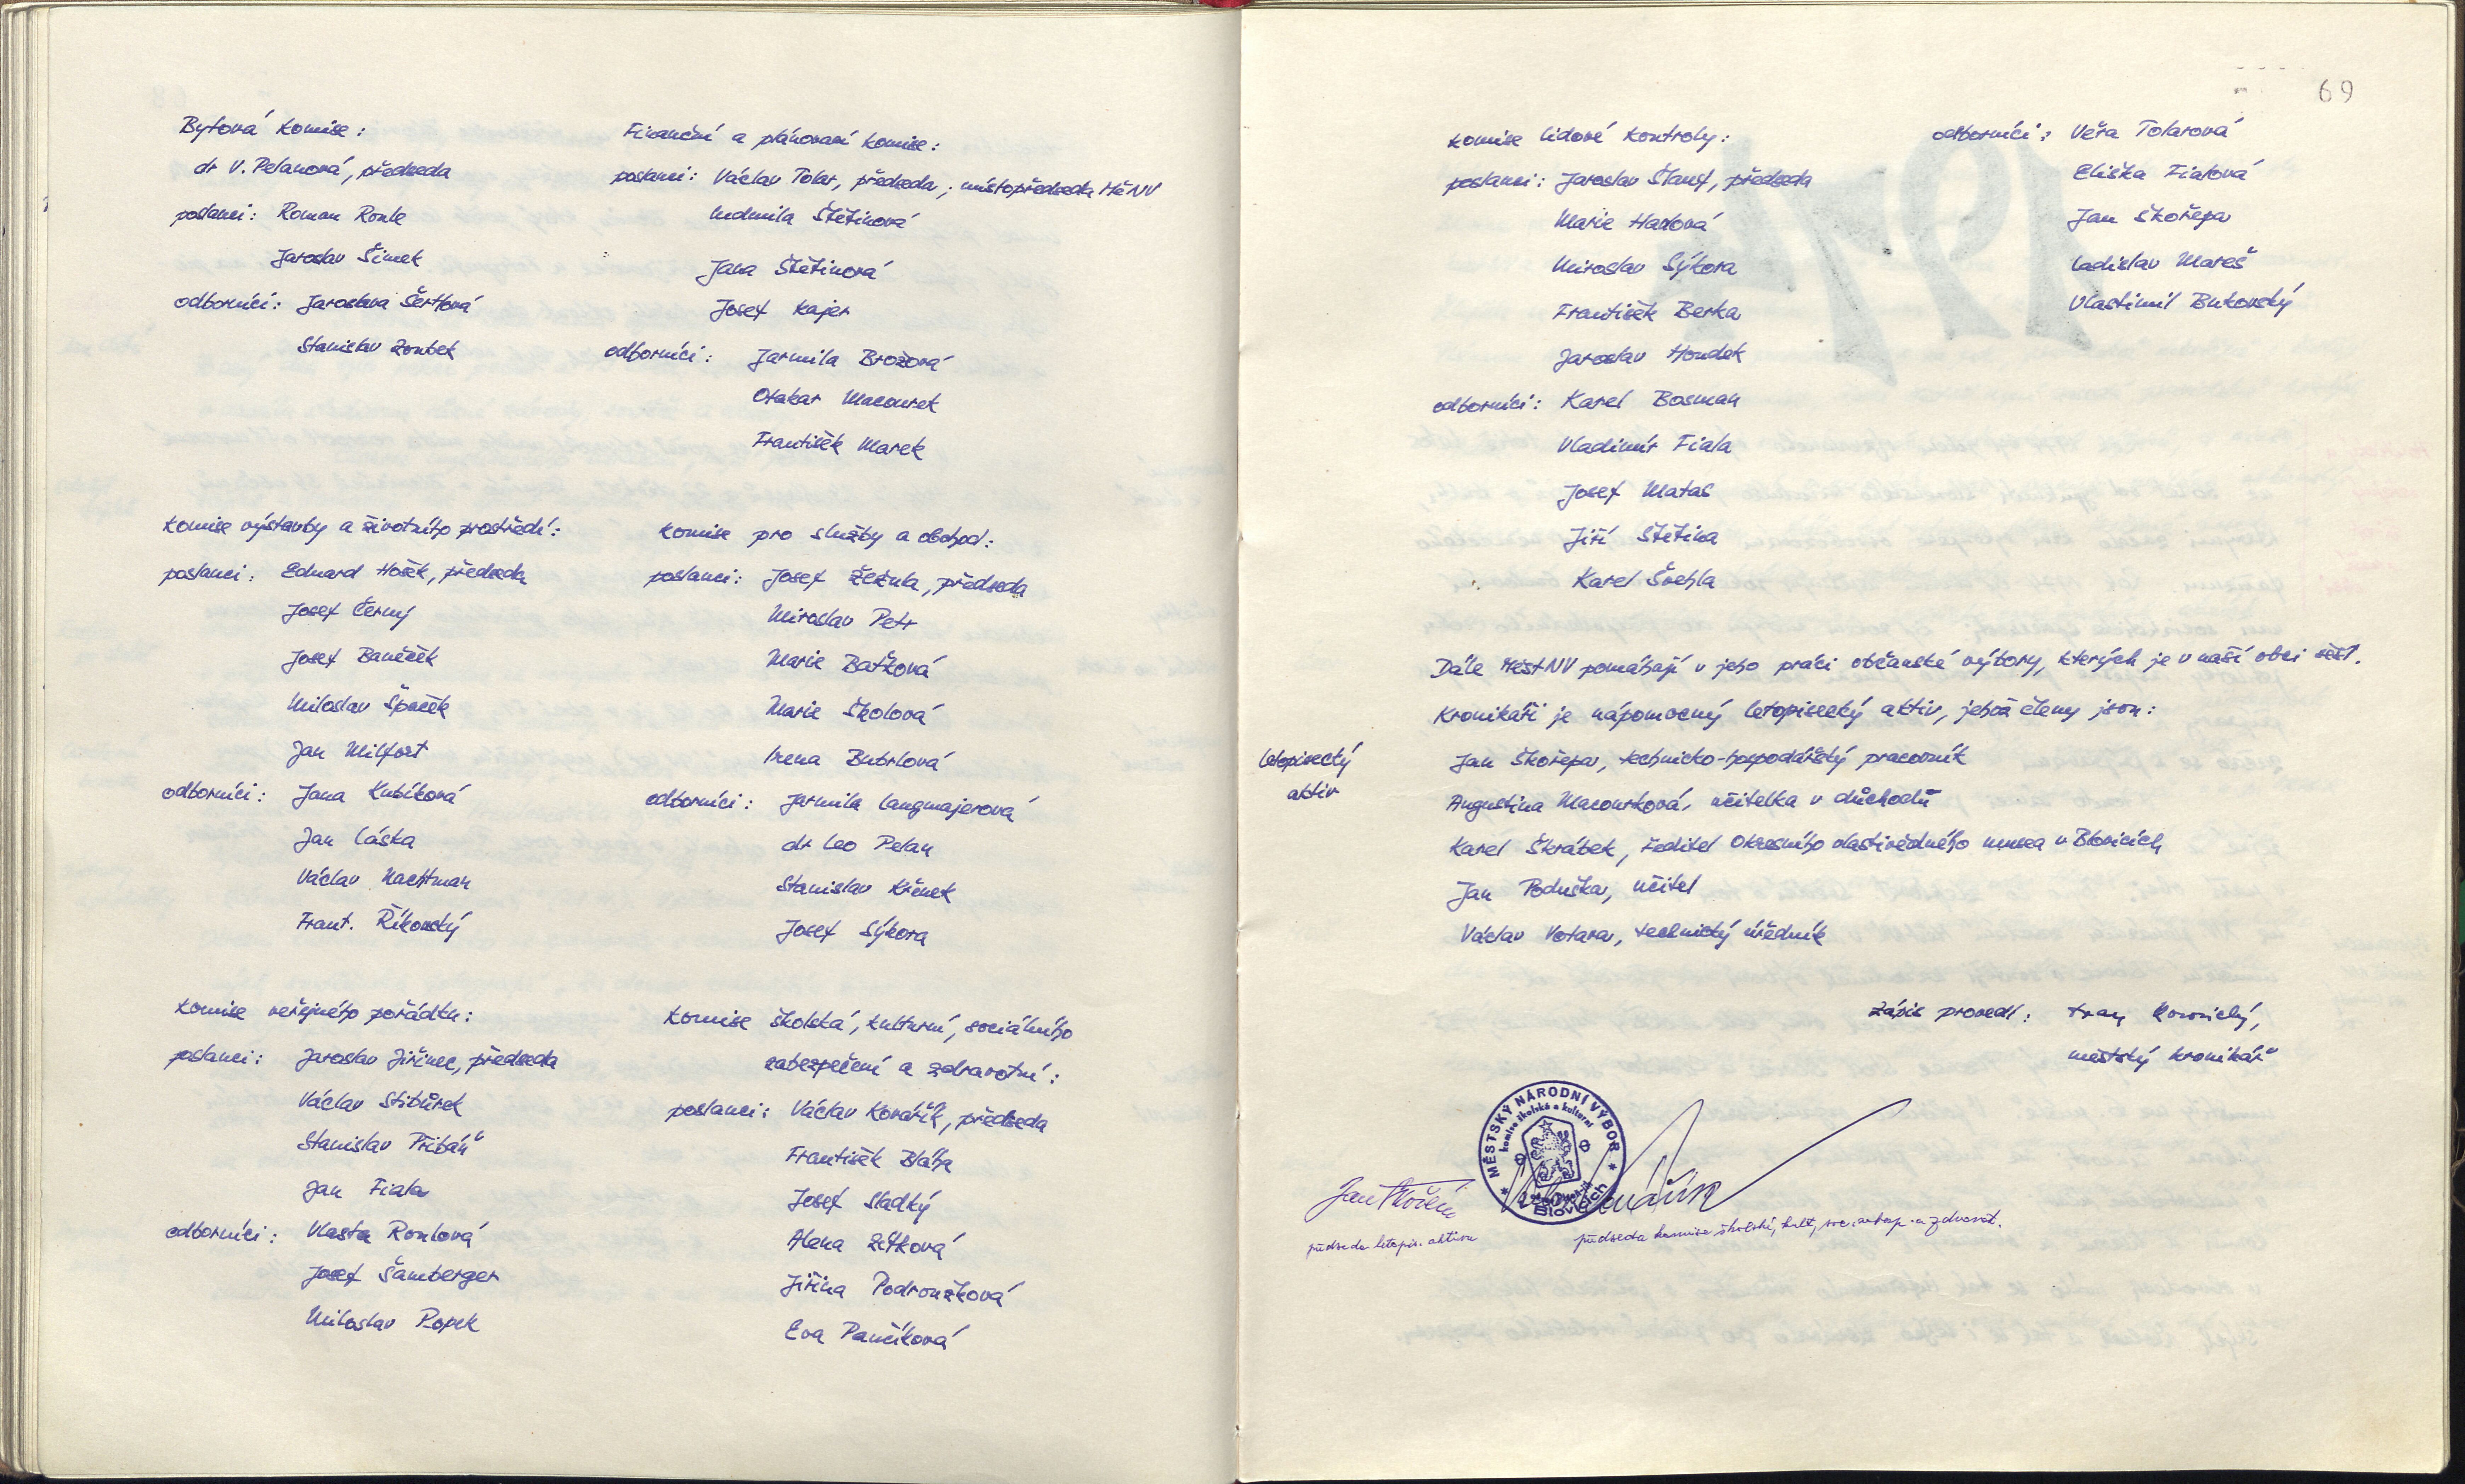 Bytová komise:
dr V. Pelanová, předseda
poslanci: Roman Roule
Jaroslav Šimek
odborníci: Jaroslava Šertlová
Stanislav Zoubek
Finanční a plánovací komise:
poslanci: Václav Tolar, předseda, místopředseda MěNV
Ludmila Štětinová
Jana Štětinová
Josef Kajer
odborníci: Jarmila Brožová
Otakar Macourek
František Marek
Komise výstavby a životního prostředí:
poslanci: Eduard Hošek, předseda
Josef Černý
Josef Baněček
Miloslav Špaček
Jan Milfort
odborníci: Jana Kubíková
Jan Láska
Václav Nachtman
Frant. Říkovský
Komise pro služby a obchod:
poslanci: Josef Žežula, předseda
Miroslav Petr
Marie Baťková
Marie Školová
Irena Bubrlová
odborníci: Jarmila Langmajerová
dr Leo Pelan
Stanislav Křenek
Josef Sýkora
Komise veřejného pořádku:
poslanci: Jaroslav Jiřinec, předseda
Václav Stibůrek
Stanislav Přibáň
Jan Fiala
odborníci: Vlasta Roulová
Josef Šamberger
Miloslav Popek
Komise školská, kulturní, sociálního
zabezpečení a zdravotní:
poslanci: Václav Kovářík, předseda
František Bláha
Josef Sladký
Alena Zítková
Jiřina Podroužková
Eva Pančíková
69
Komise lidové kontroly:
poslanci: Jaroslav Štauf, předseda
Marie Hanová
Miroslav Sýkora
František Berka
Jaroslav Houdek
odborníci: Karel Bosman
Vladimír Fiala
Josef Matas
Jiří Štětina
Karel Švehla
odborníci: Věra Tolarová
Eliška Fialová
Jan Škořepa
Ladislav Mareš
Vlastimil Bukovský
Dále MěstNV pomáhají v jeho práci občanské výbory, kterých je v naší obci šest.
Kronikáři je nápomocný letopisecký aktiv, jehož členy jsou:
letopisecký
aktiv
Jan Škořepa, technicko-hospodářský pracovník
Augustina Macourková, učitelka v důchodu
Karel Škrábek, ředitel Okresního vlastivědného musea v Blovicích
Jan Poduška, učitel
Václav Votava, technický úředník
Zápis provedl:
městský kronikář
MĚSTSKÝ NÁRODNÍ VÝBOR
komise školská a kulturní
Blovicích
předseda letopis. aktivu
předseda komise školské, kult., soc. zabezp. a zdravot.